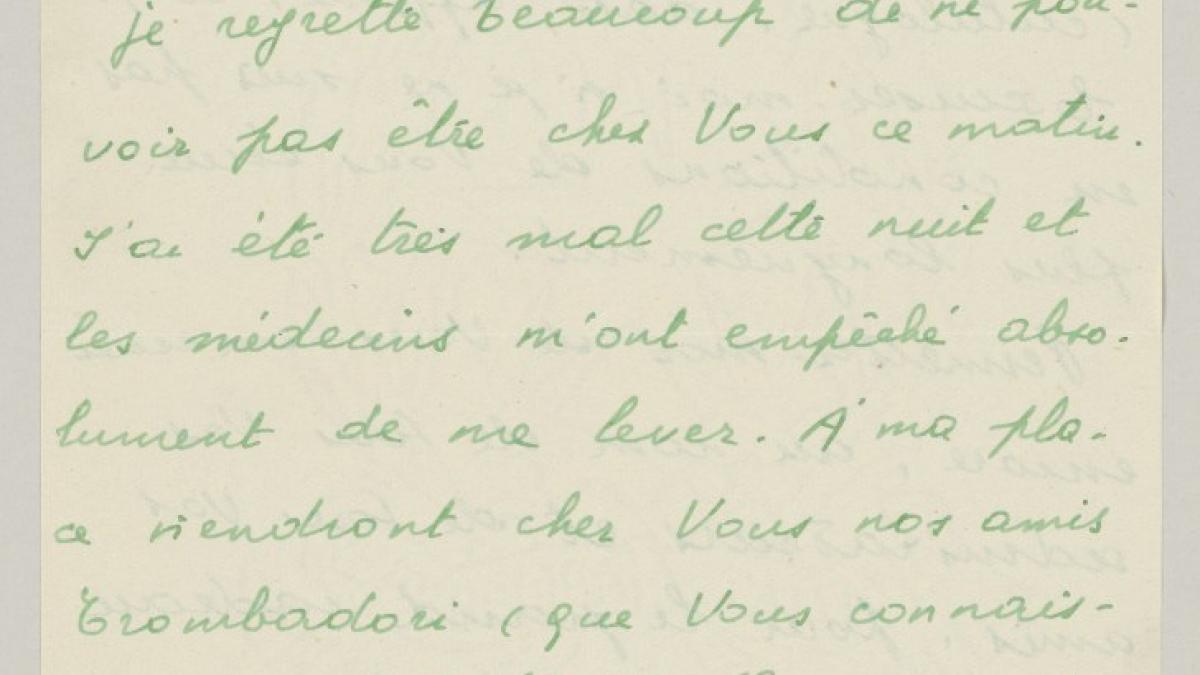 je regrette beaucoup de ne pou-
voir pas être chez Vous ce matin.
J'ai été très mal cette nuit et
les médecins m'ont empêché abso-
lument de me lever. A' ma pla-
ce viendront chez Vous nos amis
Trombadori (que Vous connais-